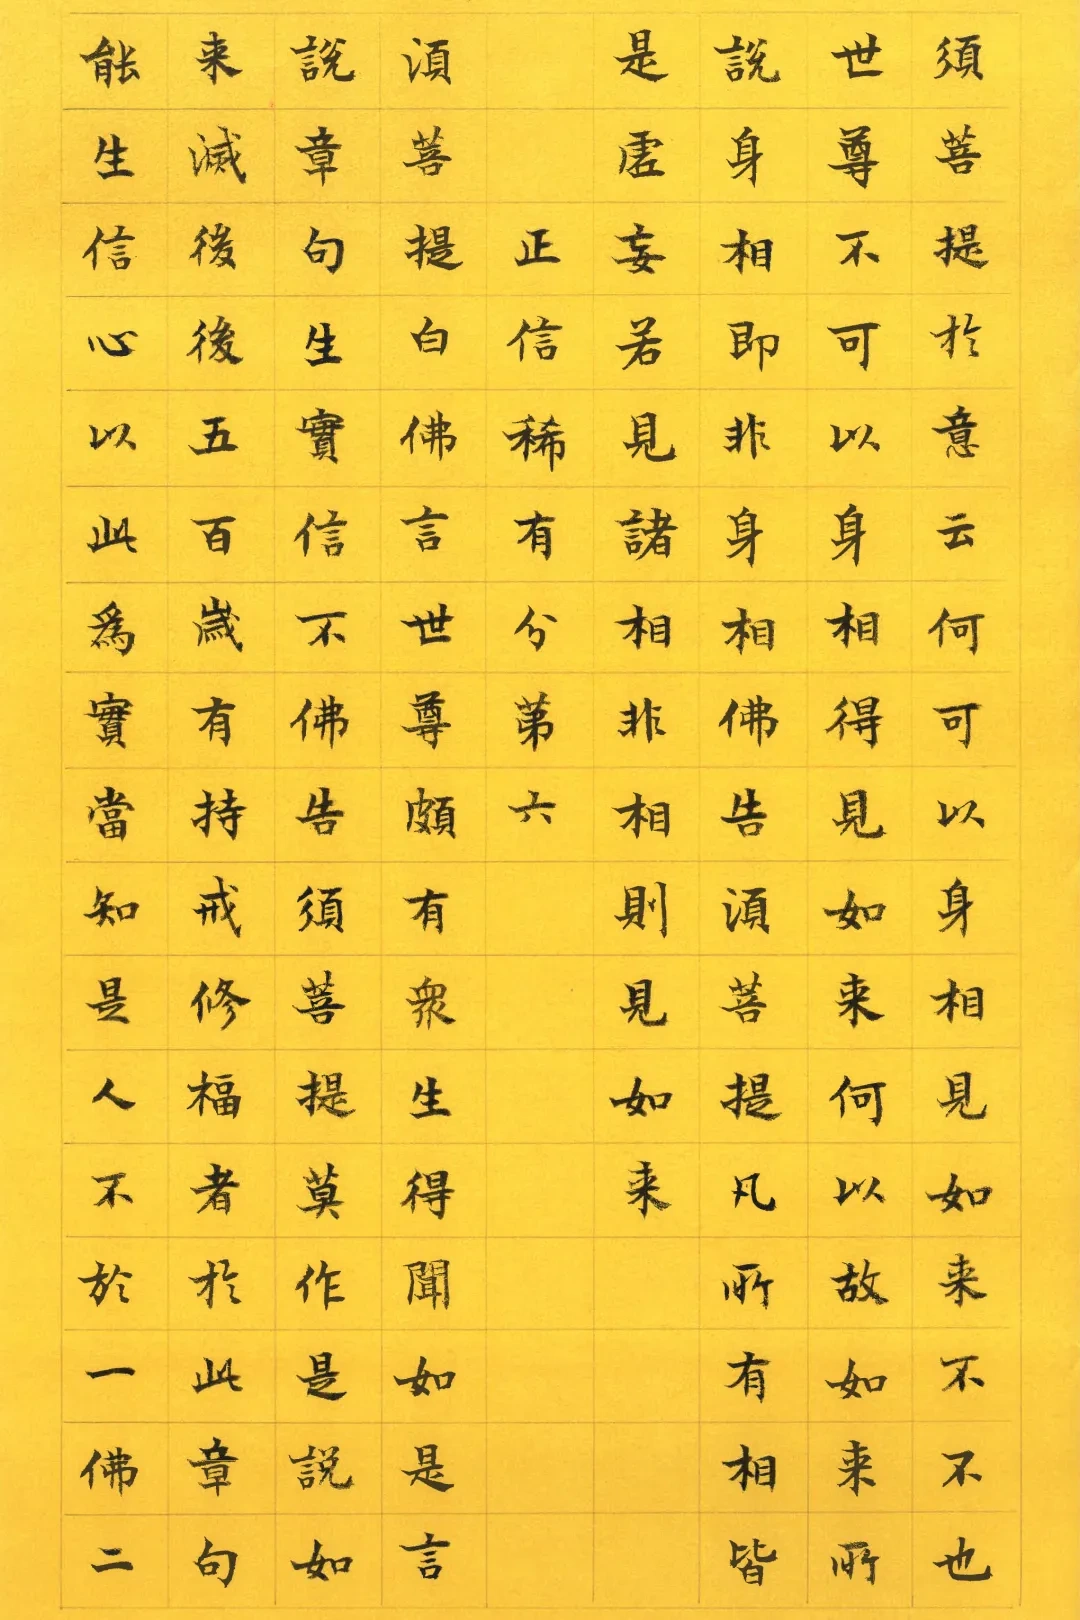 須菩提於意云何可以身相見如来不不也
世尊不可以身相得見如来何以故如来所
說身相即非身相佛告須菩提凡所有相皆
是虛妄若見諸相非相則見如来
正信稀有分第六
須菩提白佛言世尊頗有衆生得聞如是言
說章句生實信不佛告須菩提莫作是說如
来滅後後五百歲有持戒修福者於此章句
能生信心以此為實當知是人不於一佛二